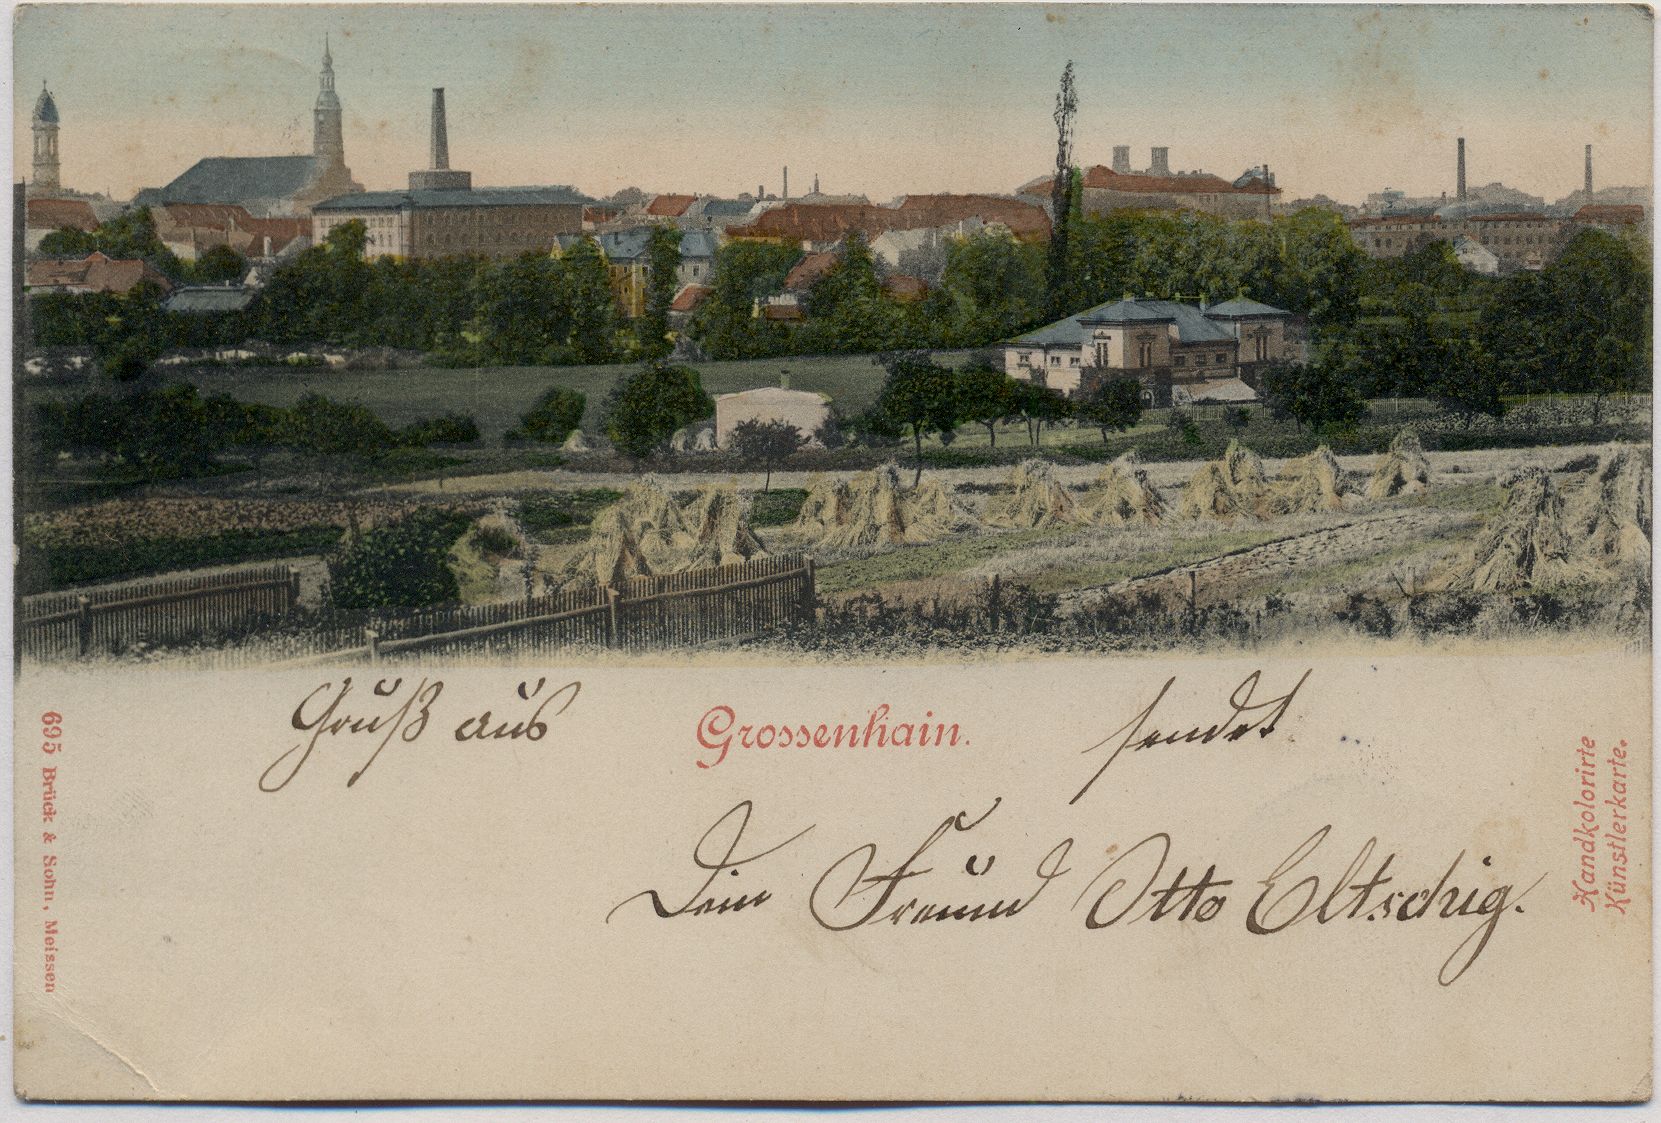 Gruß aus Grossenhain. sendet
Dein Freund Otto Eltschig.
695 Brück & Sohn, Meissen
Handkolorirte
Künstlerkarte.